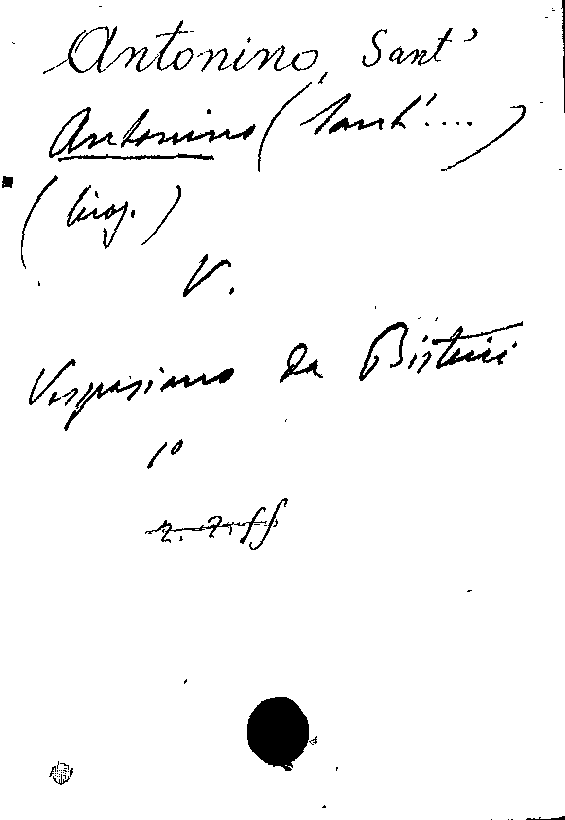 Antonino, Sant'
Antonino (Sant'....)
(biog.)
V.
Vespasiano da Bisticci
1º